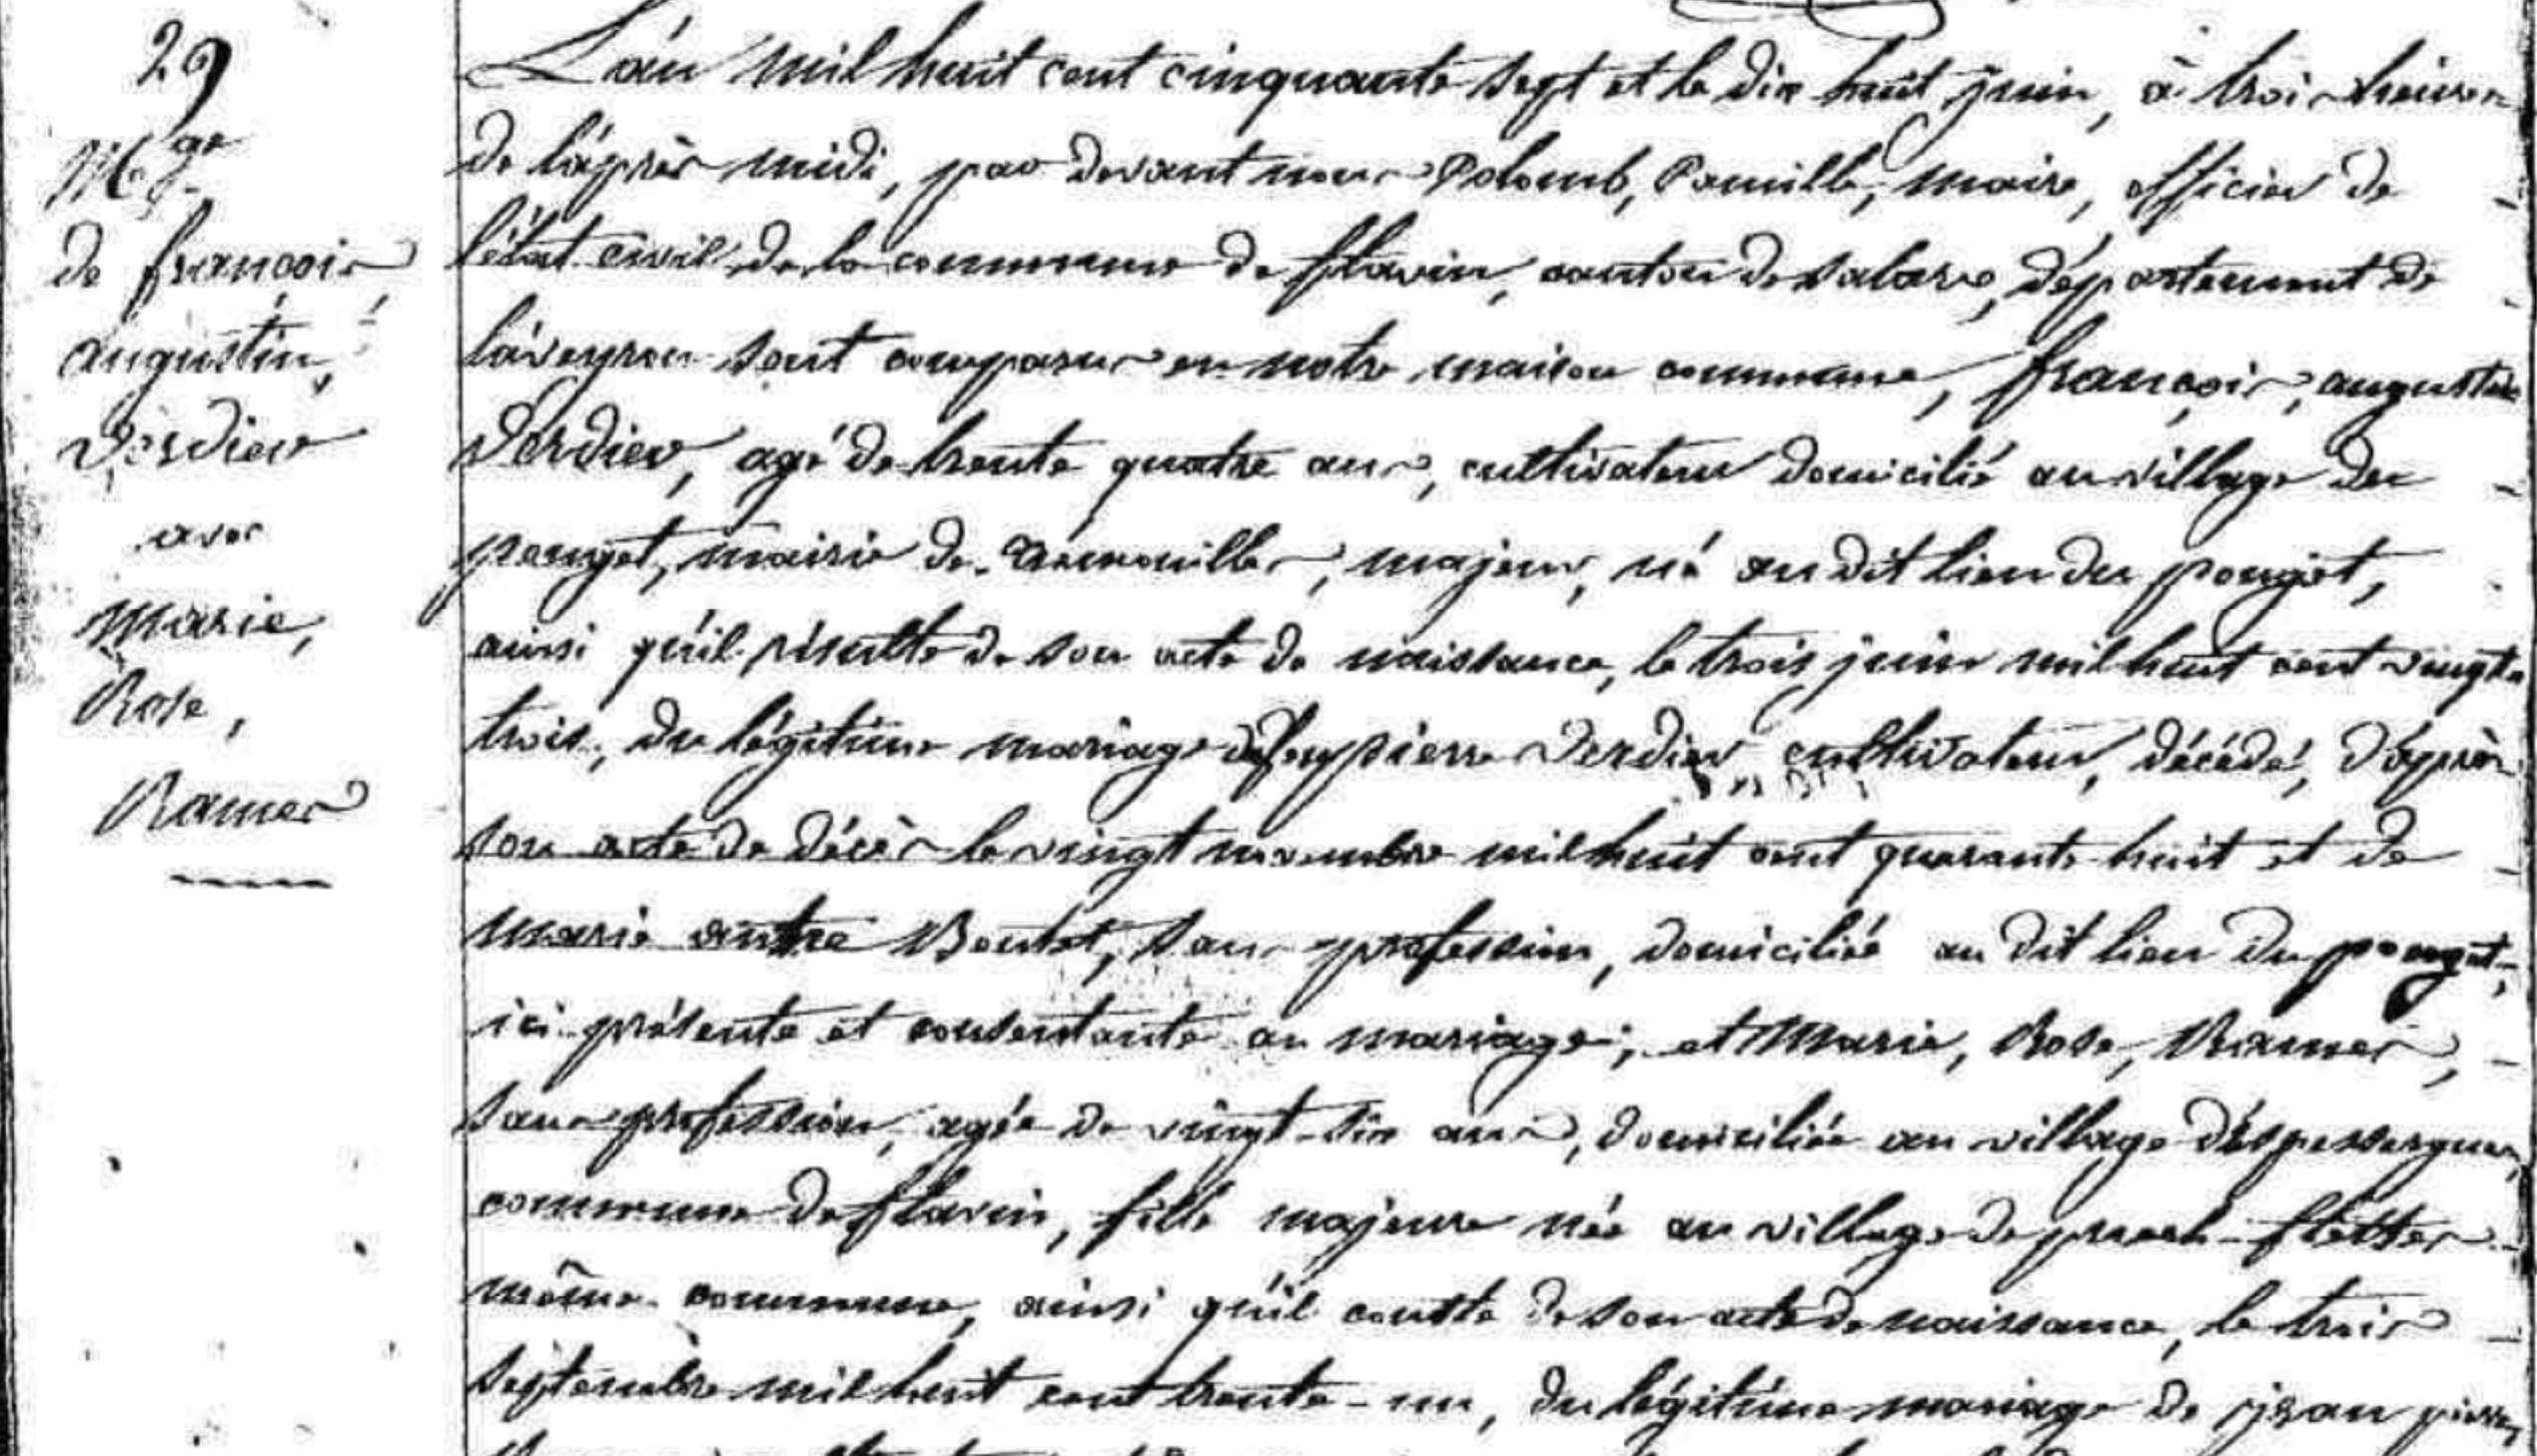 29
M.ge
de françois
augustin,
Verdier
avec
Marie,
Rose,
Rames
L'an mil huit cent cinquante sept et le dix huit juin, à trois heures
de l'après midi, par devant nous Colomb, Camille, maire, officier de
l'état civil de la commune de flavin, canton de salars, département de
l'aveyron sont comparus en notre maison commune, françois, augustin
Verdier, agé de trente quatre ans, cultivateur domicilié au village du
pouget, mairie de Tremouilles, majeur, né au dit lieu du pouget,
ainsi qu'il résulte de son acte de naissance, le trois juin mil huit cent vingt
trois, du légitime mariage de feu pierre Verdier cultivateur, décédé, d'après
son acte de décès le vingt novembre mil huit cent quarante huit et de
marie Boutet, sans profession, domiciliée au dit lieu du pouget,
ici présente et consentante au mariage; et Marie, Rose, Rames,
sans profession, agée de vingt-six ans, domiciliée au village d'espessergues,
commune de flavin, fille majeure née au village de puech
même commune, ainsi qu'il conste de son acte de naissance, le trois
septembre mil huit cent trente-un, du légitime mariage de jean pierre,